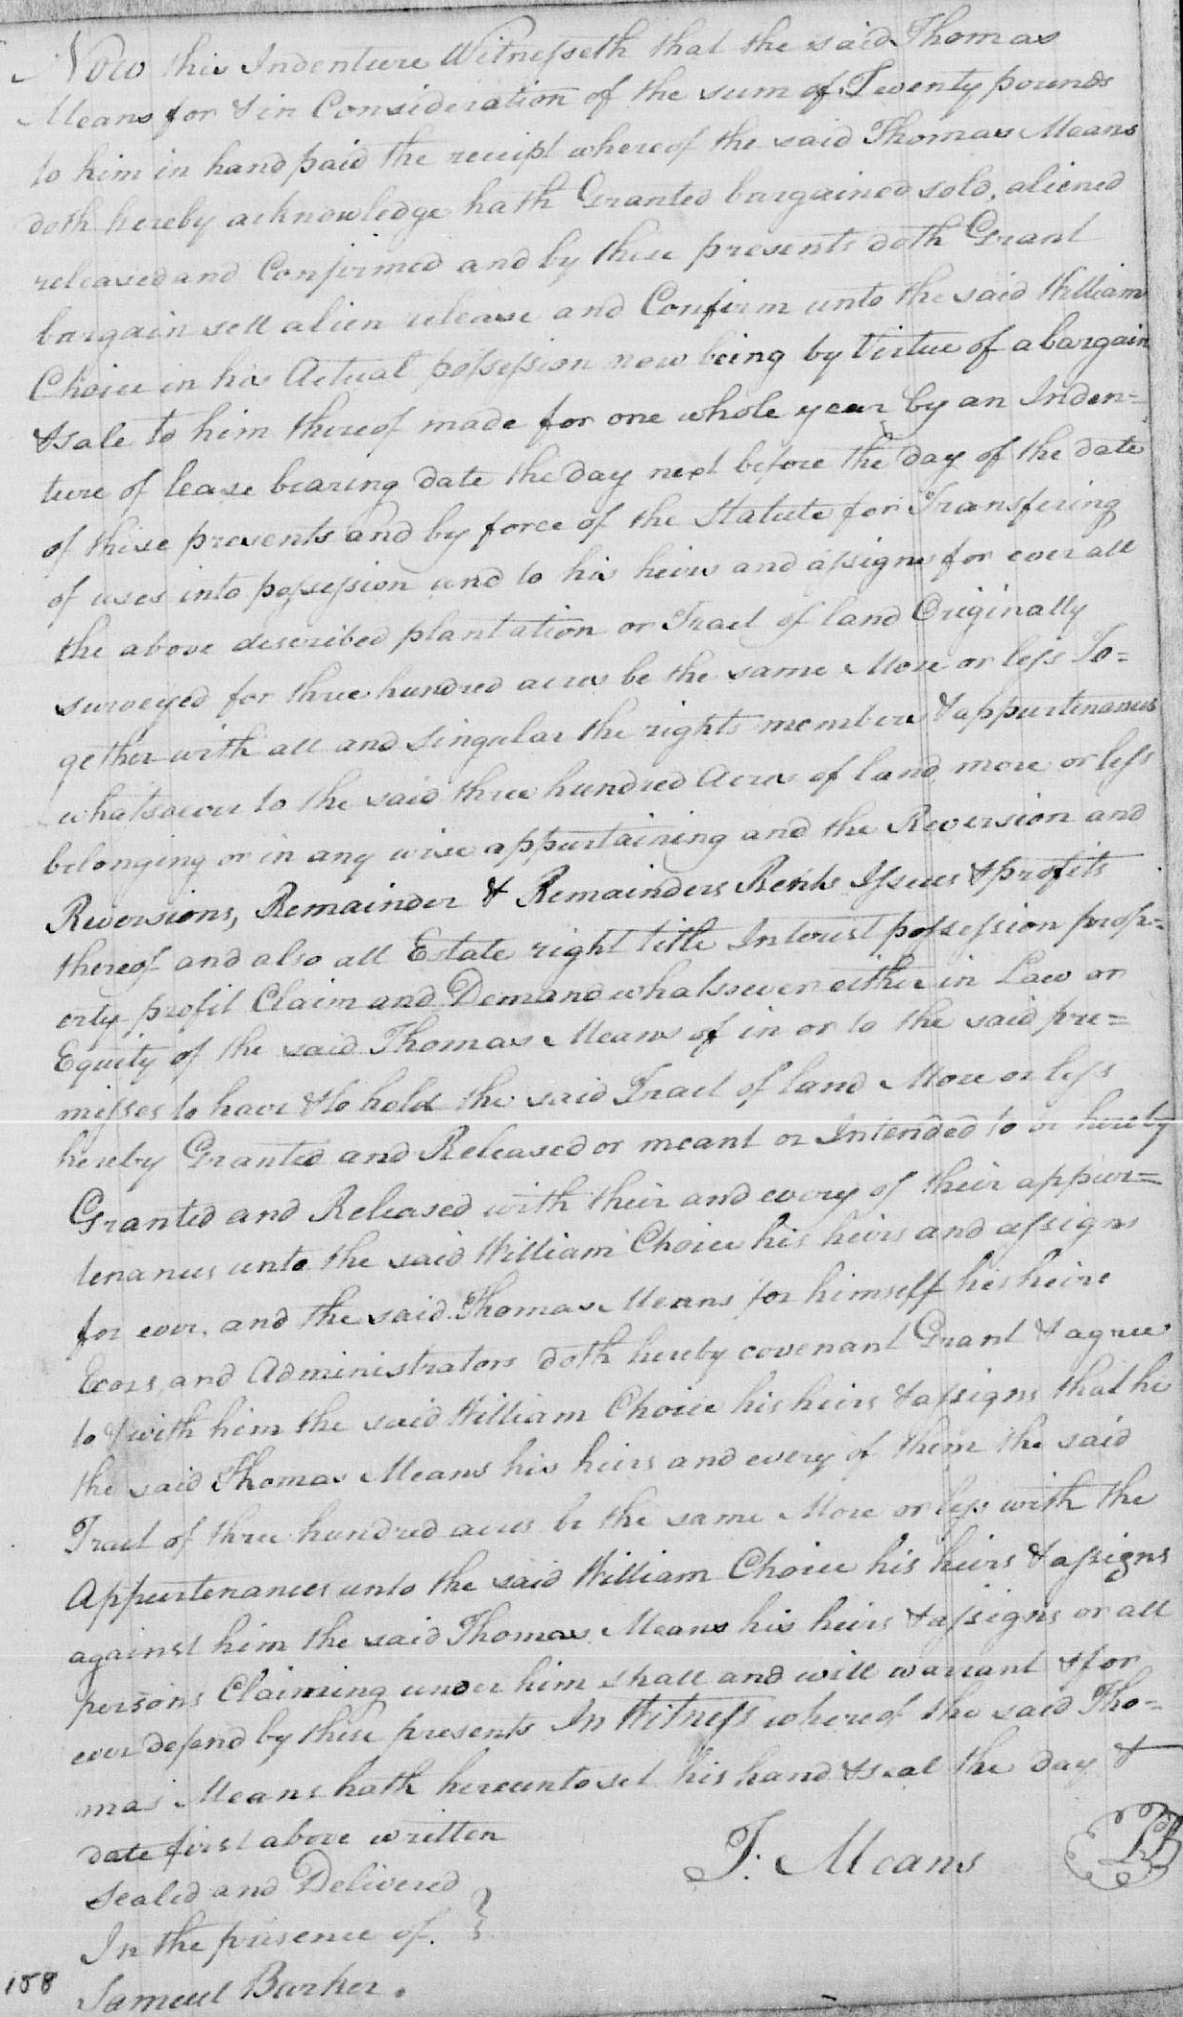 Now this Indenture Witnesseth that the said Thomas
Means for & in Consideration of the sum of Twenty pounds
to him in hand paid the receipt whereof the said Thomas Means
doth hereby acknowledge hath Granted bargained sold, aliened
released and Confirmed and by these presents doth Grant
bargain sell alien release and Confirm unto the said William
Choice in his Actual possession now being by Virtue of a bargain
& sale to him thereof made for one whole year by an Inden=
ture of lease bearing date the day next before the day of the date
of these presents and by force of the Statute for Transfering
of uses into possession and to his heirs and assigns for ever all
the above described plantation or Tract of land Originally
surveyed for three hundred acres be the same More or less To=
gether with all and singular the rights members & appurtenances
whatsoever to the said three hundred Acres of land more or less
belonging or in any wise appurtaining and the Reversion and
Reversions, Remainder & Remainders Rents Issues & profits
thereof and also all Estate right title Interest possession prop=
erty profit Claim and Demand whatsoever either in Law or
Equity of the said Thomas Means of in or to the said pre=
misses to have & to hold the said Tract of land More or less
hereby Granted and Released or meant or Intended to be hereby
Granted and Released with their and every of their appur=
tenances unto the said William Choice his heirs and assigns
for ever. and the said Thomas Means for himself his heirs
Exors, and Administrators doth hereby covenant Grant & agree
to & with him the said William Choice his heirs & assigns that he
the said Thomas Means his heirs and every of them the said
Tract of three hundred acres be the same More or less with the
Appurtenances unto the said William Choice his heirs & assigns
against him the said Thomas Means his heirs & assigns or all
persons Claiming under him shall and will warrant & for
ever defend by these presents In Witness whereof the said Tho=
mas Means hath hereunto set his hand & seal the day &
date first above written
Sealed and Delivered
T. Means
In the presence of. }
158
Samuel Barker.